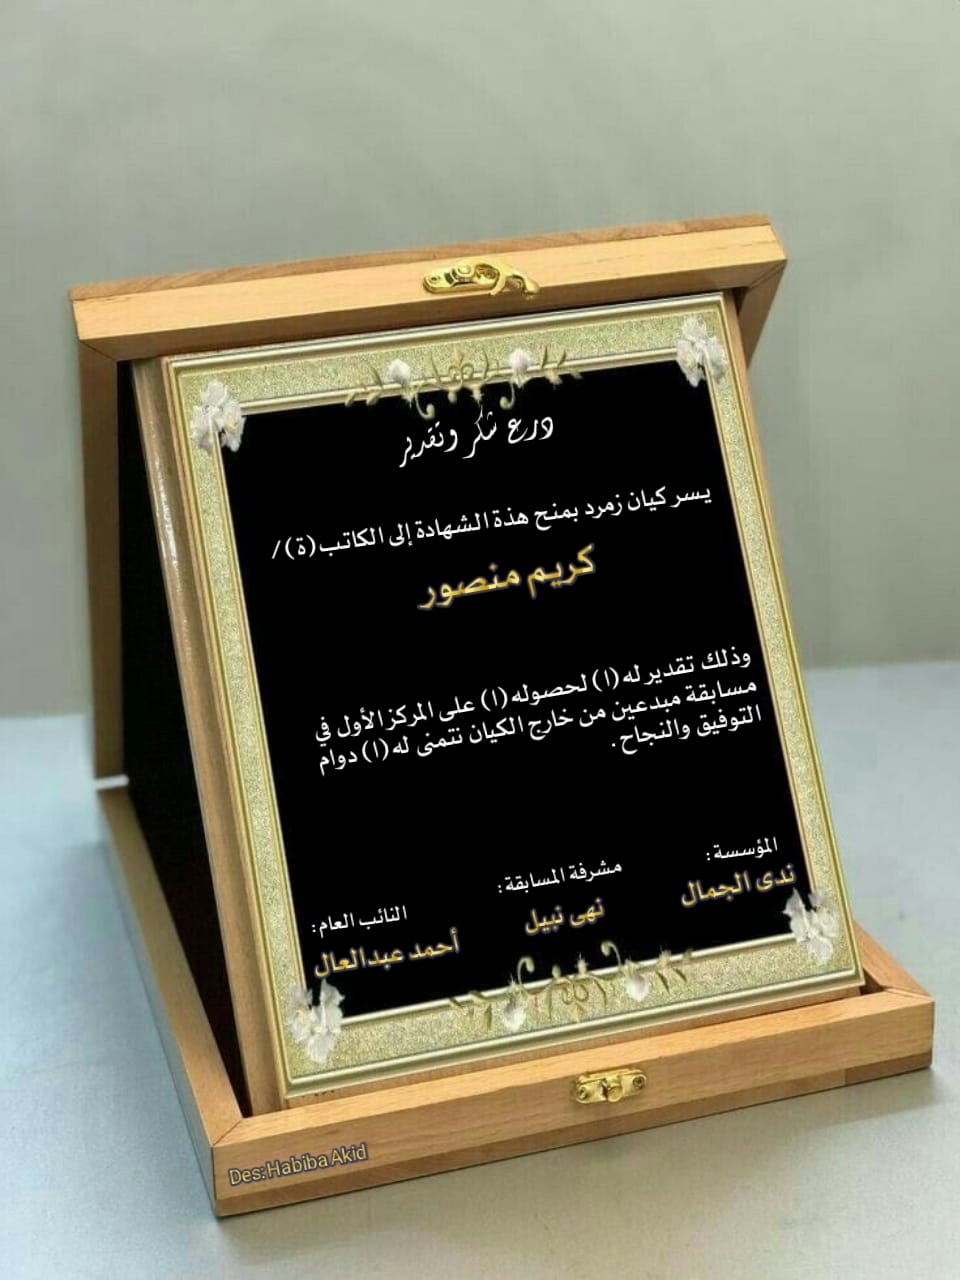 درع شكر وتقدير
يسر كيان زمرد بمنح هذة الشهادة إلى الكاتب(ة)/
كريم منصور
وذلك تقدير له(ا) لحصوله(ا) على المركز الأول في
مسابقة مبدعين من خارج الكيان نتمنى له(ا) دوام
التوفيق والنجاح.
المؤسسة:
ندى الجمال
مشرفة المسابقة:
نهى نبيل
النائب العام:
أحمد عبدالعال
Des:Habiba Akid